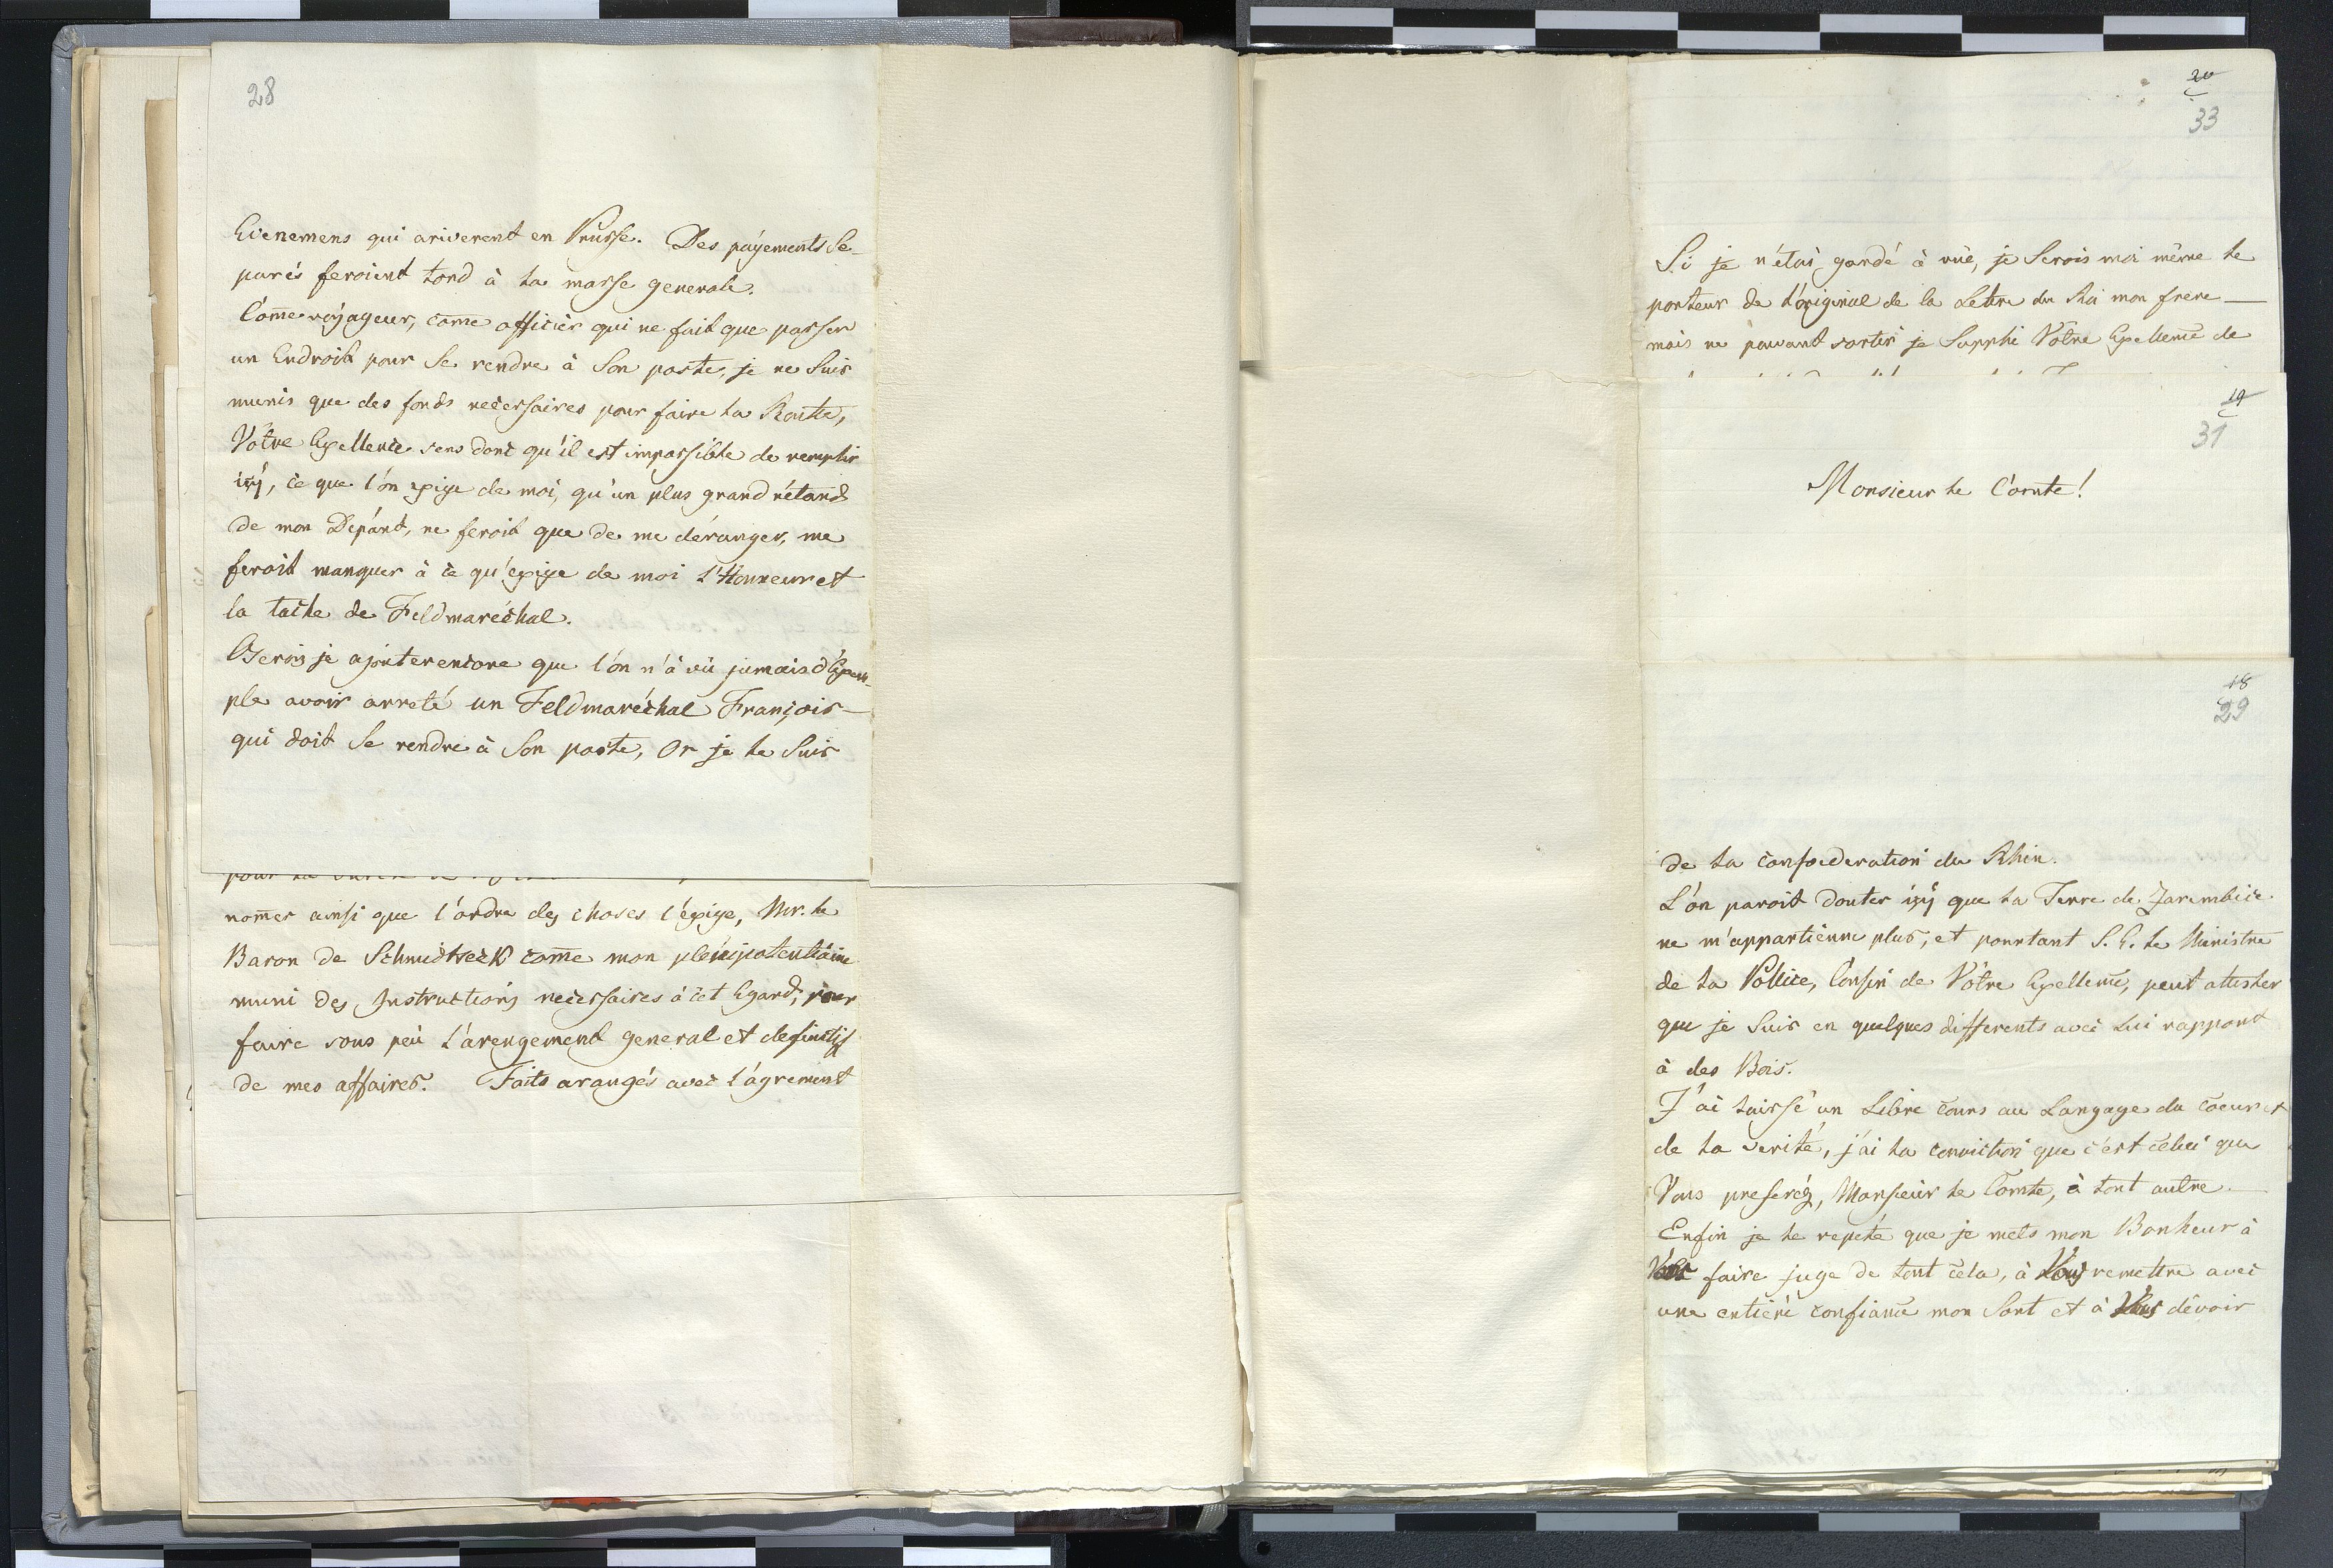 28
Evenemens qui ariverent en Prusse. Des payements Se-
parés feroient tord à la masse generale.
Come voyageur, come officier qui ne fait que passer
un Endroit pour Se rendre à Son poste, je ne Suis
munis que des fonds necessaires pour faire la Route,
Votre Exellence sens donc qu'il est impossible de remplir
içy, ce que l'on exige de moi, qu'un plus grand rétard
de mon Depart, ne feroit que de me déranger, me
feroit manquer à ce qu'exige de moi l'Honneur et
la tache de Feldmaréchal.
Oserois je ajouter encore que l'on n'à vù jamais d'Exem-
ple avoir arreté un Feldmaréchal François
qui doit Se rendre à Son poste, Or je le Suis
nomer ainsi que l'ordre des choses l'exige, Mr. le
Baron de Schmidseck come mon plénipotentiaire
muni des Instructions necessaires à cet Egard, pour
faire sous peù l'arengement general et definitif
de mes affaires. Faits arangés avec l'àgrement
20
33
Si je n'étois gardé à vùe, je Serois moi même le
porteur de l'original de la Lettre du Roi mon frere
mais ne pouvant sortir je Supplie Votre Exellence de
19
31
Monsieur le Comte!
18
29
de la confoederation du Rhin.
L'on paroit douter içy que la Terre de Zarembice
ne m'appartienne plus, et pourtant S. E. le Ministre
de la Pollice, Cousin de Votre Exellence, peut attester
que je Suis en quelques differents avec Lui rapport
à des Bois.
J'ai laissé un Libre cours au Langage du coeur et
de la verité, j'ai la conviction que c'est celui que
Vous preferéz, Monsieur le Comte, à tout autre.
Enfin je le repete que je mets mon Bonheur à
Vous faire juge de tout cela, à Vous remettre avec
une entiere confiance mon Sort et à Vous dévoir